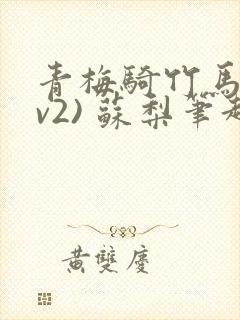 青梅騎竹馬
v2) 蘇梨筆趣
黃雙慶